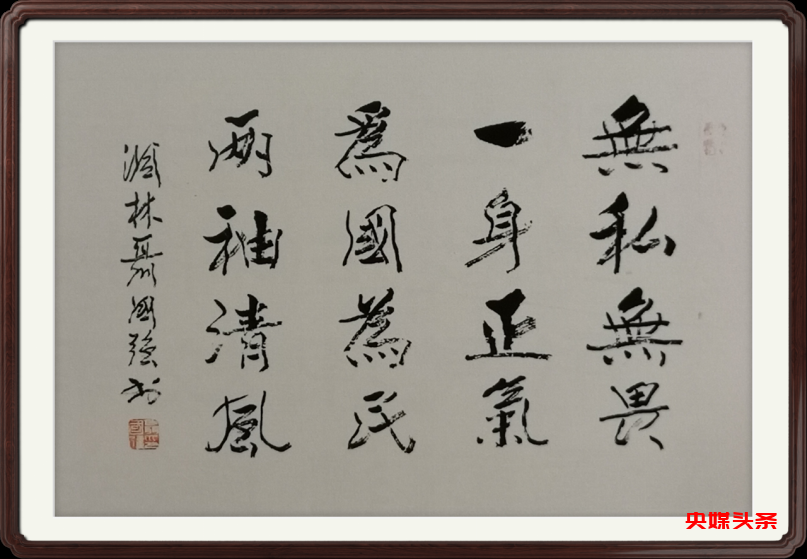 無私無畏
一身正氣
為國為民
兩袖清風
國強书
央媒头条